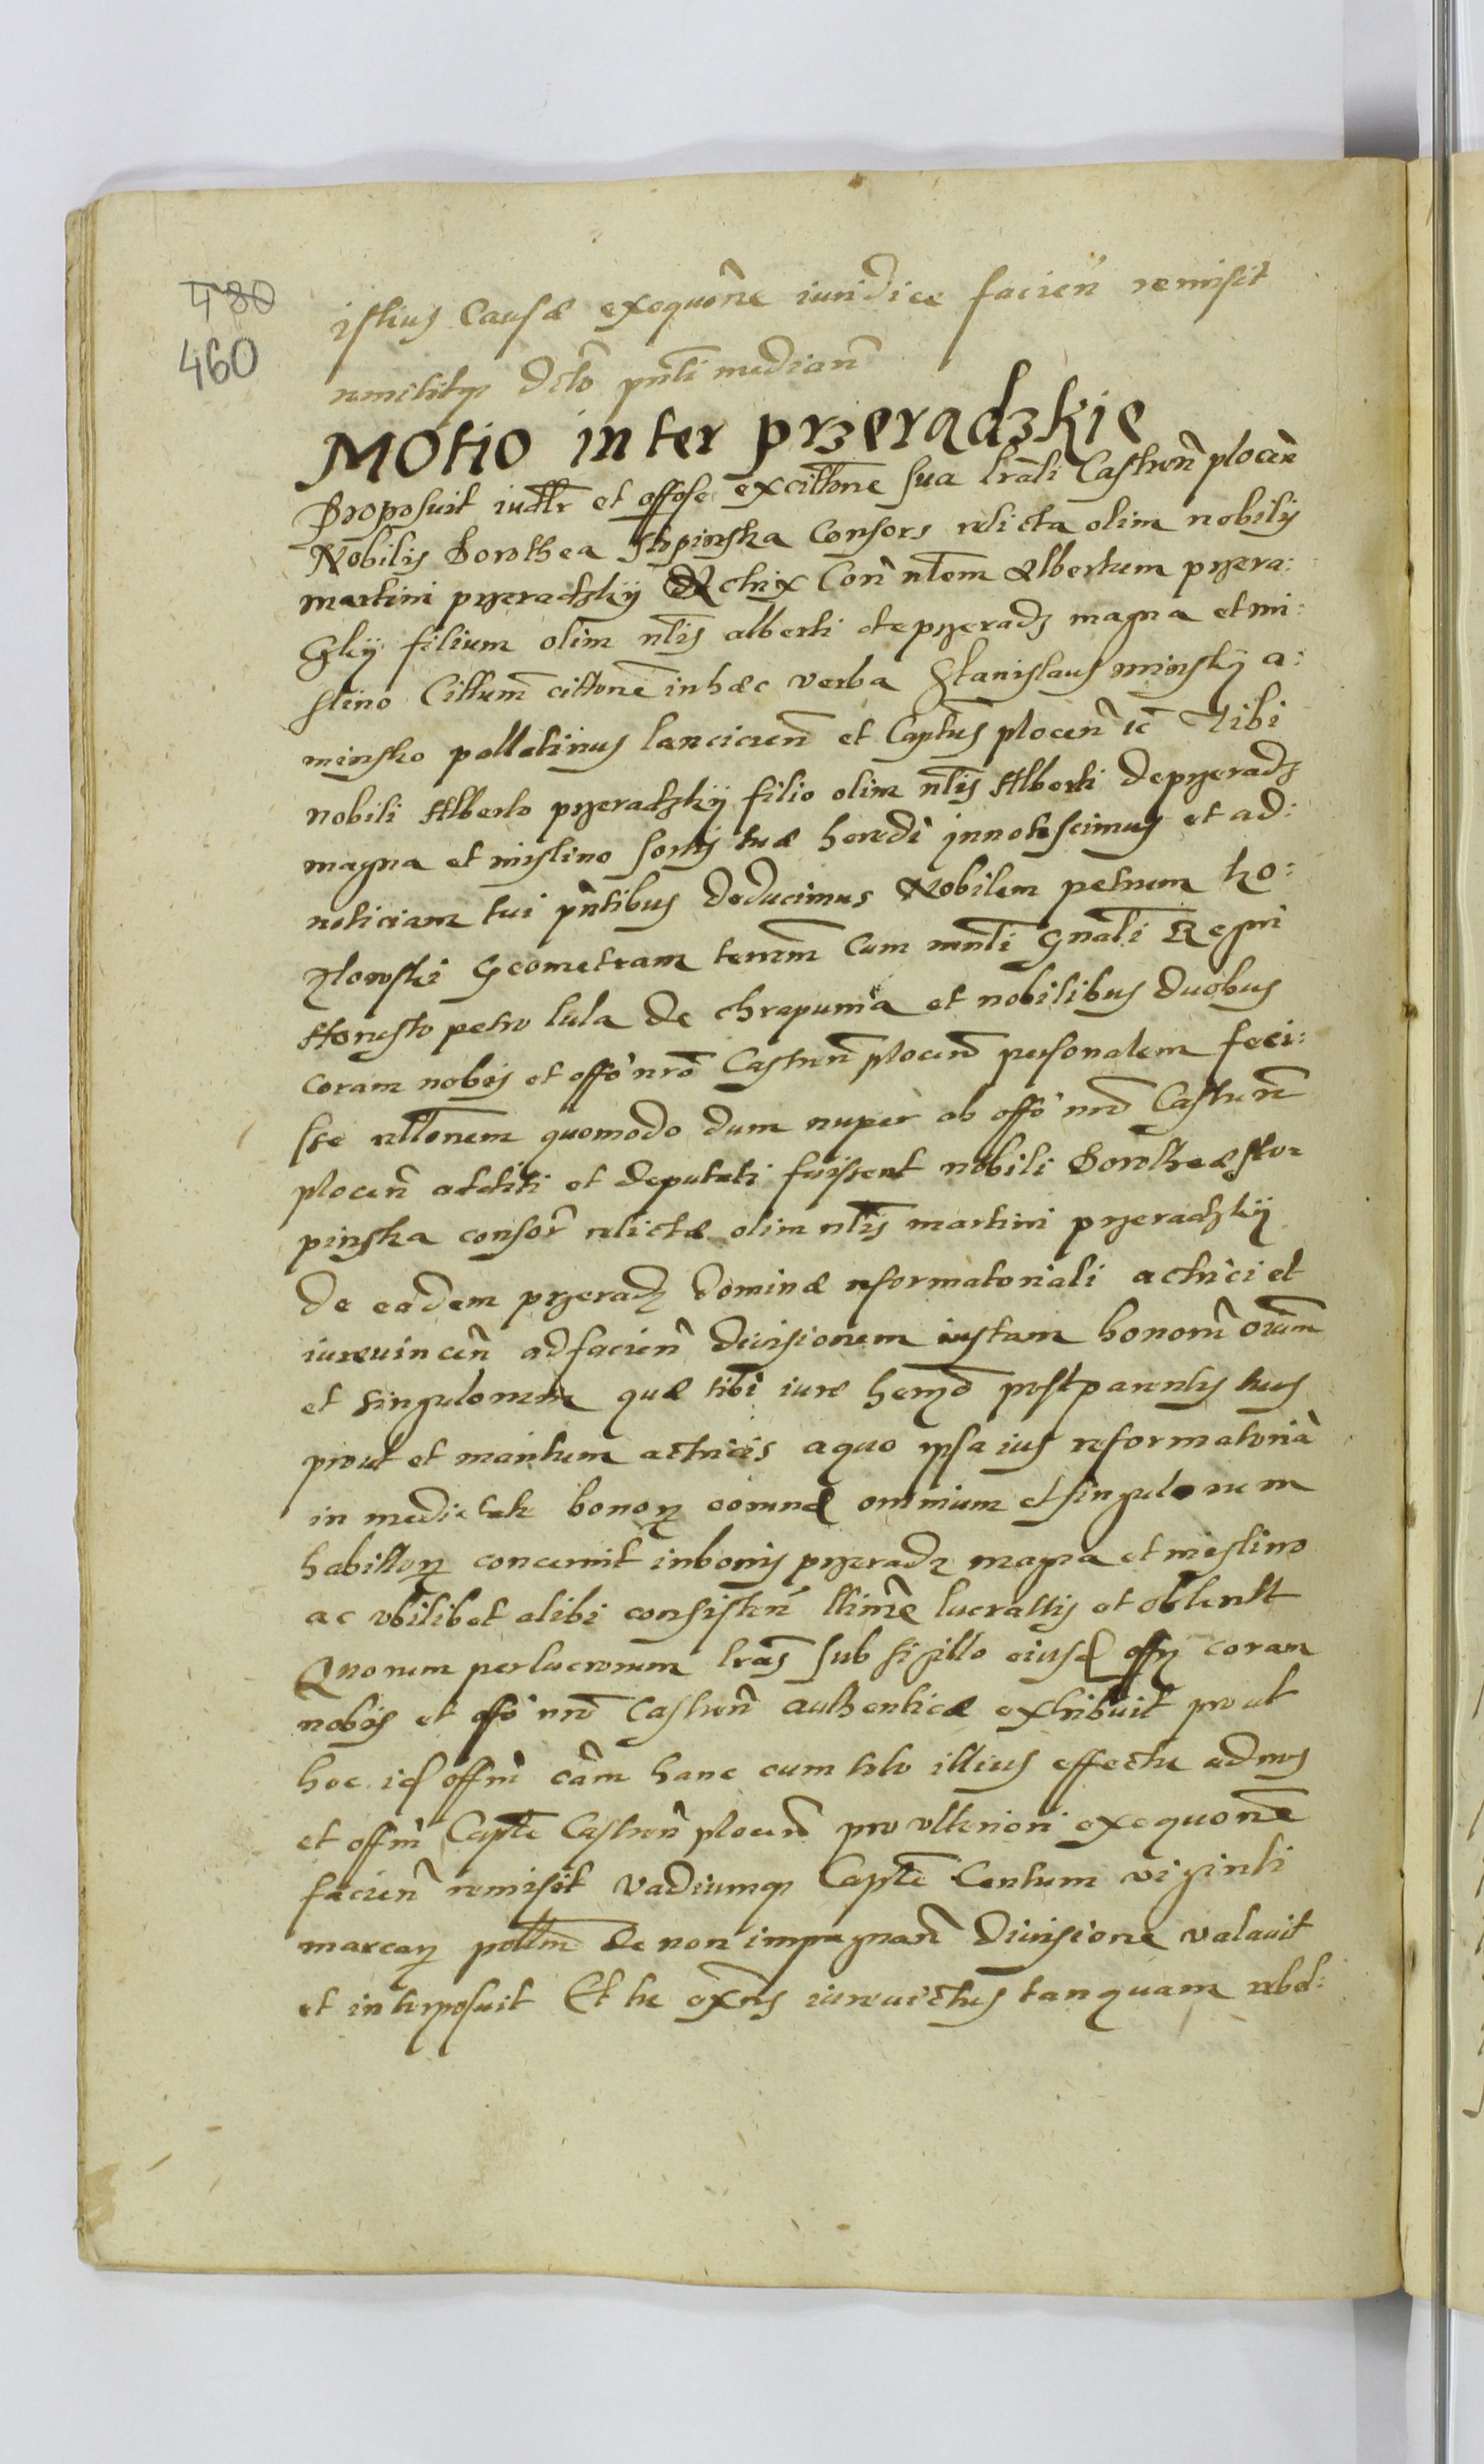 480
460
istius Causæ exequõne iuridice facien̄ remisit
remititqꝫ Dcto pn̄ti median̄
Motio inter przeradzkie
Proposuit iudłr et offose excittõne sua lrãli Castren̄ plocen̄
Nobilis Dorothea Stpinska Consors relicta olim nobilis
martini przeradzkij Actrix Con nłem Albertum przera:
dzkij filium olim nłis alberti de przeradz magna et mi:
slino Cittum̄ cittonē in hæc verba Stanislaus minskÿ a:
minsko pallatinus lancicien̄ et Captūs plocen̄ ec̄ Tibi
nobili Alberto przeradzkij filio olim nłis Alberti de przeradz
magna et mislino sortis tuæ heredi innotescimus et ad:
noticiam tui pn̄tibus deducimus Nobilem petrum ko:
złowski Geometram terrēm Cum mnłi Gnãli Regni
Honesto petro lula de chrapunia et nobilibus duobus
coram nobis et offo nrõ Castren̄ plocen̄ personalem feci:
sse rltõnem quomodo dum nuper ab offo nrõ Castren̄
plocen̄ additi et deputati fuissent nobili Dorotheæ sto:
pinska consor̄ relictæ olim nłis martini przeradzkij
de eadem przeradz Dominæ reformatoriali actrici et
iurevincen̄ ad facien̄ divisionem iustam bonorū oīum
et singulorum quæ tibi iure herēo post parentes tuos
prout et maritum actricis a quo ipsa ius reformatoriā
in medietate bonoꝝ eorund omnium et singulorum
habittoꝝ concernit in bonis przeradz magna et mislino
ac ubilibet alibi consisten̄ ltime lucrattis et obtentt
Quorum perlucrorum lrãs sub sigillo eiusd offÿ coram
nobis et offo nrõ Castren̄ authenticæ exhibuit prout
hoc id offm̄ cãm hanc cum toto illius effectu ad nos
et offm̄ Capłe Castren̄ plocen̄ pro ulteriori exequõne
facien̄ remisit vadiumqꝫ Capłe Centum viginti
marcaꝝ pollm̄ de non impugnan̄ divisione valavit
et interposuit Et tu exn̄s iurevictus tanquam rebel: